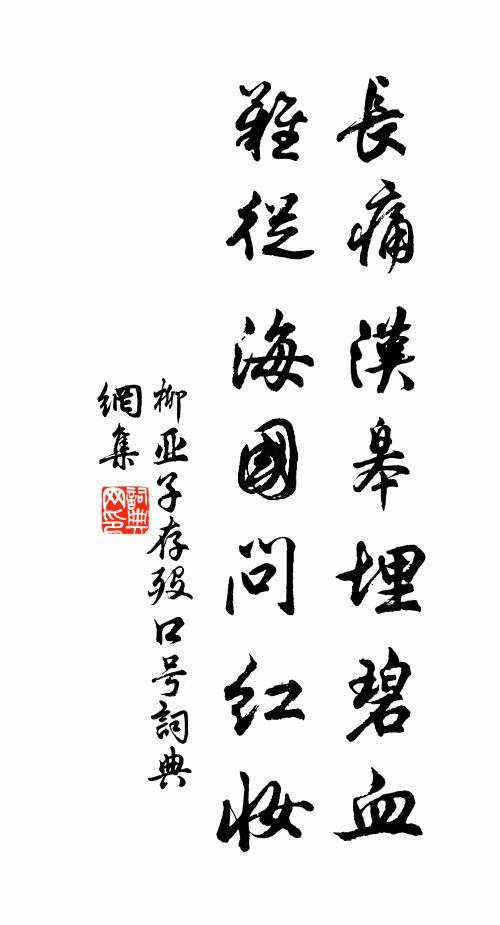 長痛漢皋埋碧血
難從海國問红妝
柳亚子存殁口号詞典
網集
詞典
网印